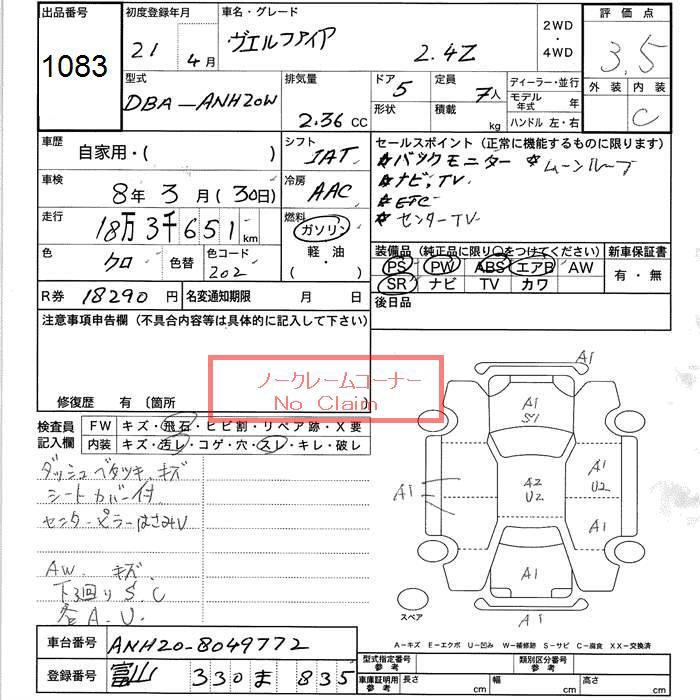 出品番号
1083
初度登録年月
21年 4月
車名・グレード
ヴェルファイア 2.4Z
2WD
・
4WD
評価点
3.5
外装 内装
C
型式
DBA-ANH20W
排気量
2.36 CC
ドア
5
形状
定員
7人
積載
kg
ディーラー・並行
モデル年式 年
ハンドル 左・右
車歴
自家用・( )
シフト
IAT
車検
8年 3月(30日)
冷房
AAC
走行
18万3千651km
燃料
ガソリン
軽・油
( )
色
クロ
色替
色コード
202
R券 18290円
名変通知期限 月 日
セールスポイント(正常に機能するものに限ります)
*バックモニター *ムーンルーフ
*ナビ,TV
*ETC
*センターTV
装備品(純正品に限り○をつけてください)
PS PW ABS エアB AW
SR ナビ TV カワ
新車保証書
有・無
後日品
注意事項申告欄(不具合内容等は具体的に記入して下さい)
ノークレームコーナー
No Claim
修復歴 有〔箇所
検査員記入欄
FW キズ・飛石・ヒビ割・リペア跡・X要
内装 キズ・汚レ・コゲ・穴・スレ・キレ・破レ
ダッシュベタツキ、キズ
シートカバー付
センターピラーはさみU
AW. キズ.
下回りS.C
各A.U.
A1
A1
S1
A1
A2
U2
A1
U2
A1
A1
A1
スペア
A-キズ E-エクボ U-凹み W-補修跡 S-サビ C-腐食 XX-交換済
車台番号 ANH20-8049772
登録番号 富山 330 ま 835
型式指定番号 参考
類別区分番号 参考
車庫証明用 参考
長さ cm
幅 cm
高さ cm